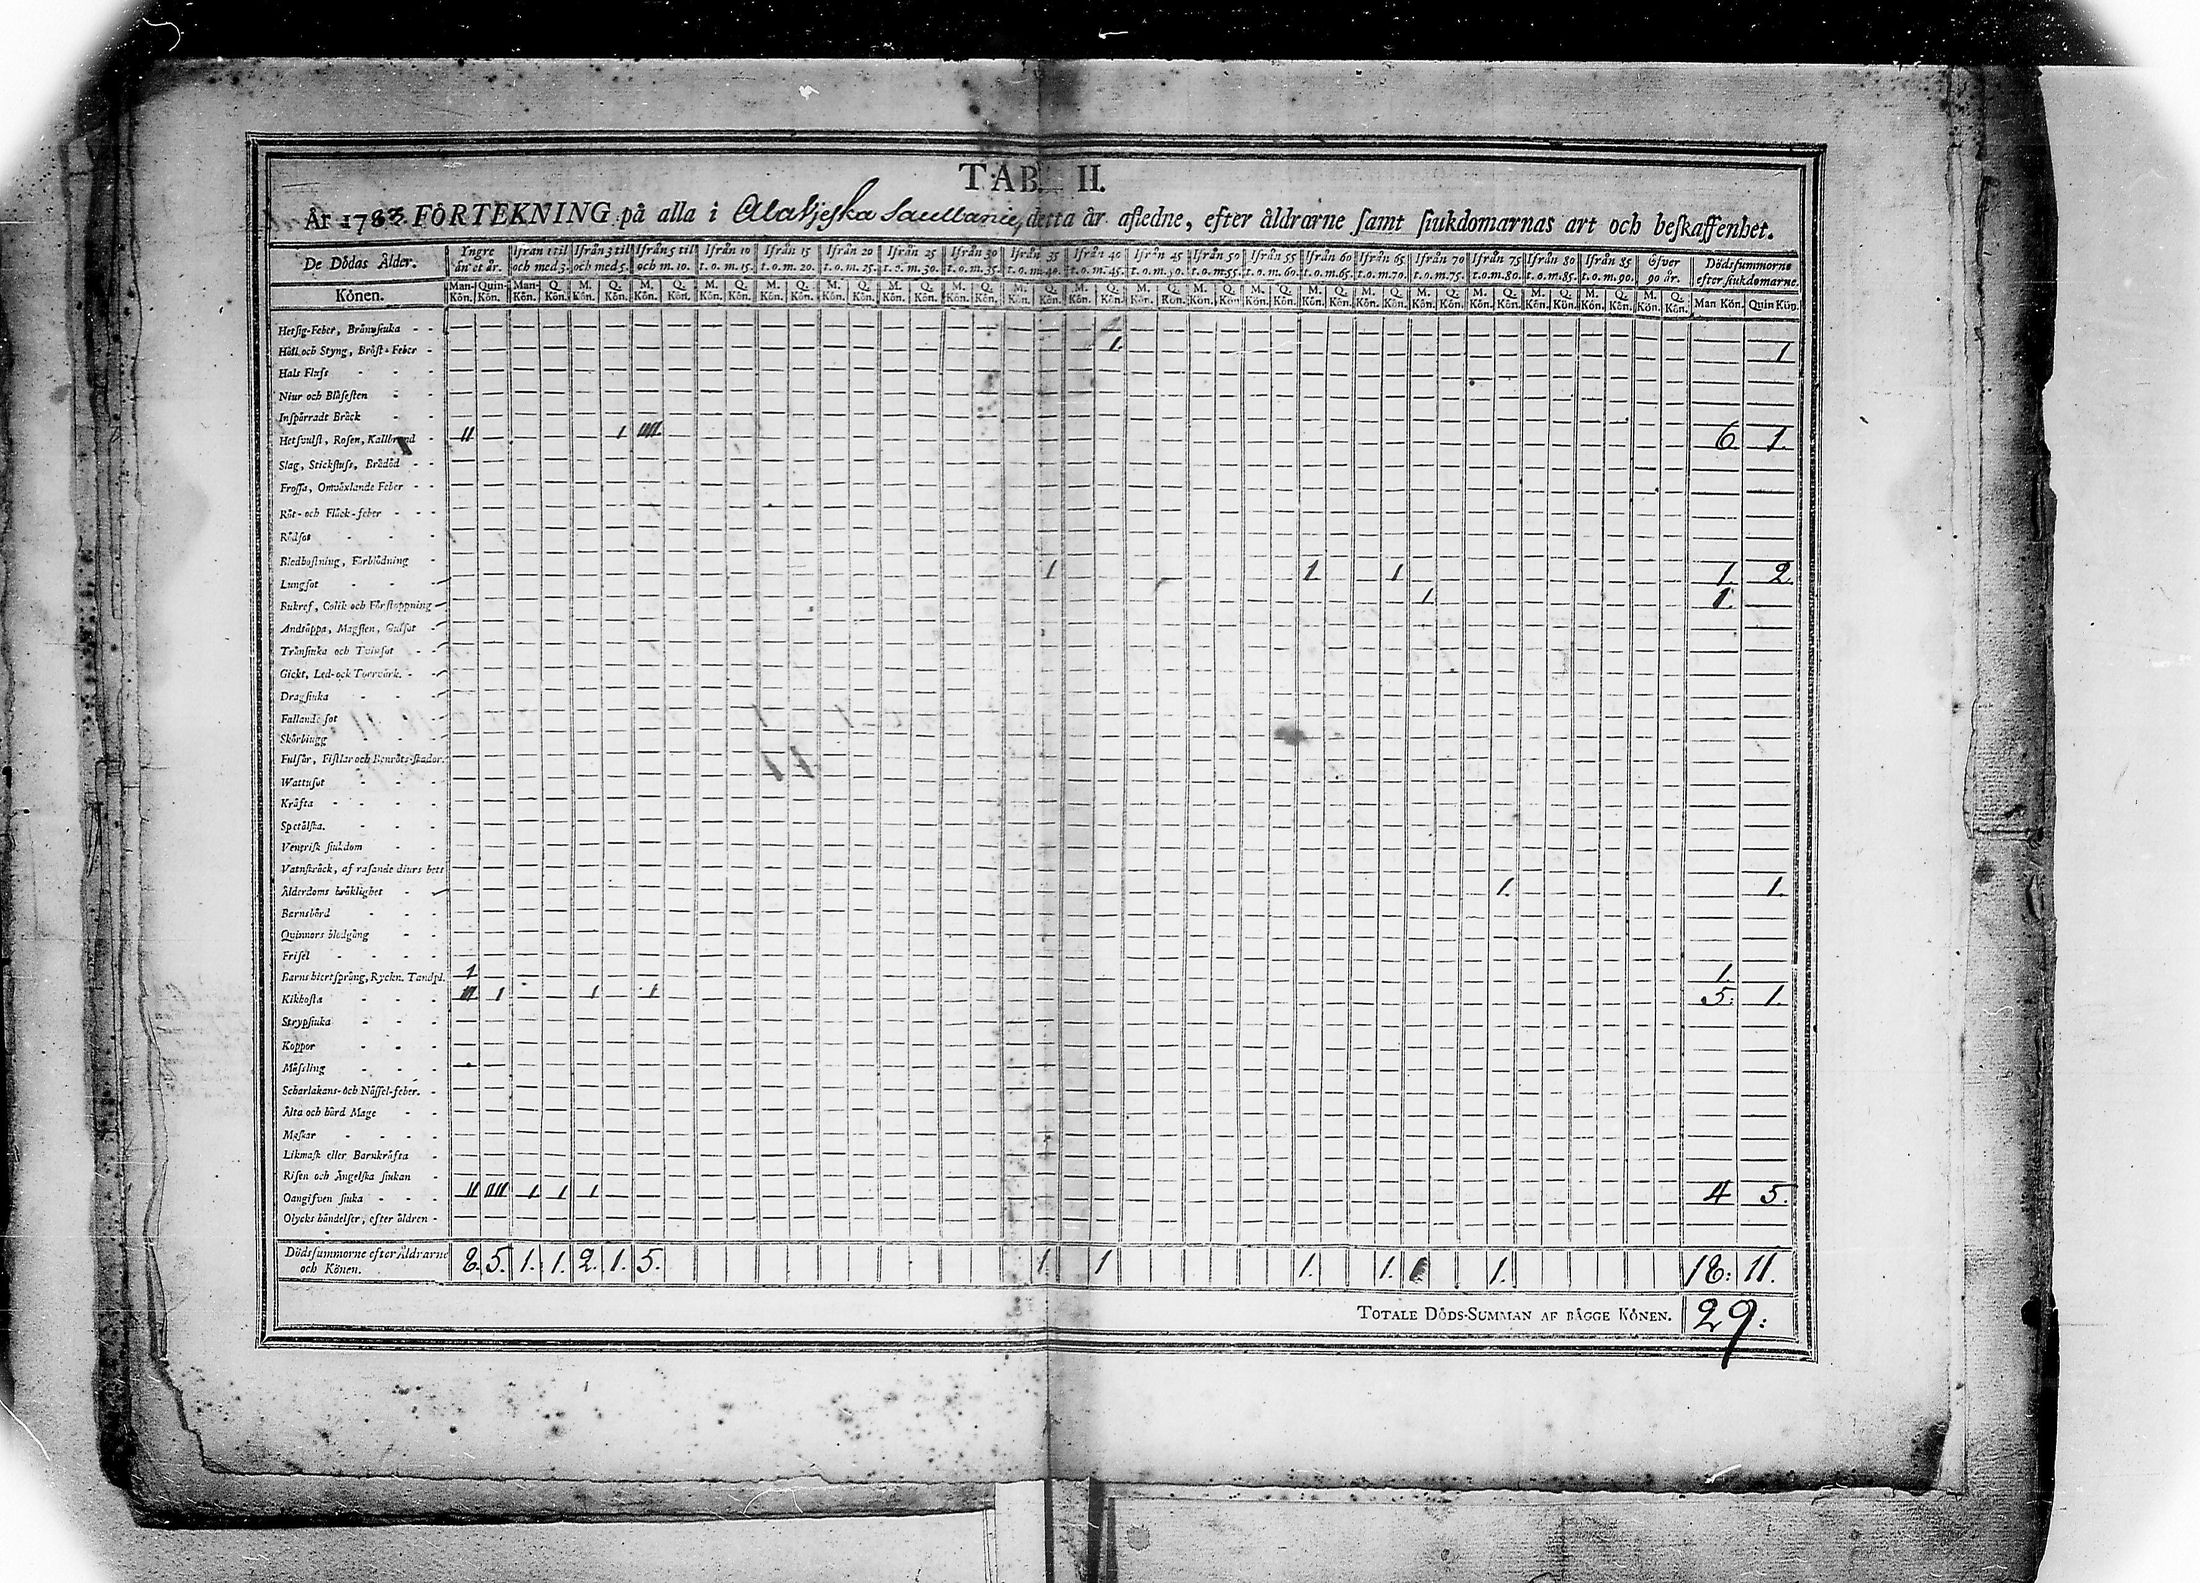 TAB. II.
År 1783 FÖRTEKNING på alla i detta år afledne, efter åldrarne samt siukdomarnas art och beskaffenhet.
De Dödas Ålder. Yngre än et år. Ifrån 1 til och med 3. Ifrån 3 til och med 5. Ifrån 5 til och m. 10. Ifrån 10 t. o. m. 15. Ifrån 15 t. o. m. 20. Ifrån 20 t. o. m. 25. Ifrån 25 t. o. m. 30. Ifrån 30 t. o. m. 35. Ifrån 35 t. o. m. 40. Ifrån 40 t. o. m. 45. Ifrån 45 t. o. m. 50. Ifrån 50 t. o. m. 55. Ifrån 55 t. o. m. 60. Ifrån 60 t. o. m. 65. Ifrån 65 t. o. m. 70. Ifrån 70 t. o. m. 75. Ifrån 75 t. o. m. 80. Ifrån 80 t. o. m. 85. Ifrån 85 t. o. m. 90. Öfver 90 år. Dödssummorne efter siukdomarne.
Könen. Man-Kön. Quin-Kön. Man-Kön. Q. Kön. M. Kön. Q. Kön. M. Kön. Q. Kön. M. Kön. Q. Kön. M. Kön. Q. Kön. M. Kön. Q. Kön. M. Kön. Q. Kön. M. Kön. Q. Kön. M. Kön. Q. Kön. M. Kön. Q. Kön. M. Kön. Q. Kön. M. Kön. Q. Kön. M. Kön. Q. Kön. M. Kön. Q. Kön. M. Kön. Q. Kön. M. Kön. Q. Kön. M. Kön. Q. Kön. M. Kön. Q. Kön. M. Kön. Q. Kön. M. Kön. Q. Kön. Man Kön. Quin Kön.
Hetsig-Feber, Brännsiuka
Håll och Styng, Bröst-Feber 1. 1
Hals Fluss
Niur och Blåsesten
Inspärradt Bråck
Hetsvulst, Rosen, Kallbrand II 1 IIII 6. 1.
Slag, Stickfluss, Brådöd
Frossa, Omväxlande Feber
Röt- och Fläck-feber
Rödsot
Blodhostning, Förblödning
Lungsot 1 1. 1 1. 2.
Bukref, Colik och Förstoppning 1 1.
Andtäppa, Magsten, Gulsot
Trånsiuka och Tvinsot
Gickt, Led- och Torrvärk.
Dragsiuka
Fallande sot
Skörbiugg
Fulsår, Fistlar och Benröts-skador.
Wattusot
Kräfta
Spetälska.
Venerisk siukdom
Vatnskräck, af rasande diurs bett
Ålderdoms bräklighet 1. 1.
Barnsbörd
Quinnors blodgång
Frisel
Barns hiertsprång, Ryckn. Tandpl. 1 1.
Kikhosta III 1 1 1 5. 1.
Strypsiuka
Koppor
Mässling
Scharlakans- och Nässel-feber.
Älta och hård Mage
Maskar
Likmask eller Barnkräfta
Risen och Ängelska siukan
Oangifven siuka II IIII 1 1 1 4 5.
Olycks händelser, efter åldren
Dödssummorne efter Åldrarne 8. 5. 1. 1. 2. 1. 5. 1. 1 1. 1. 1 1. 18: 11.
och Könen.
TOTALE DÖDS-SUMMAN AF BÄGGE KÖNEN. 29: